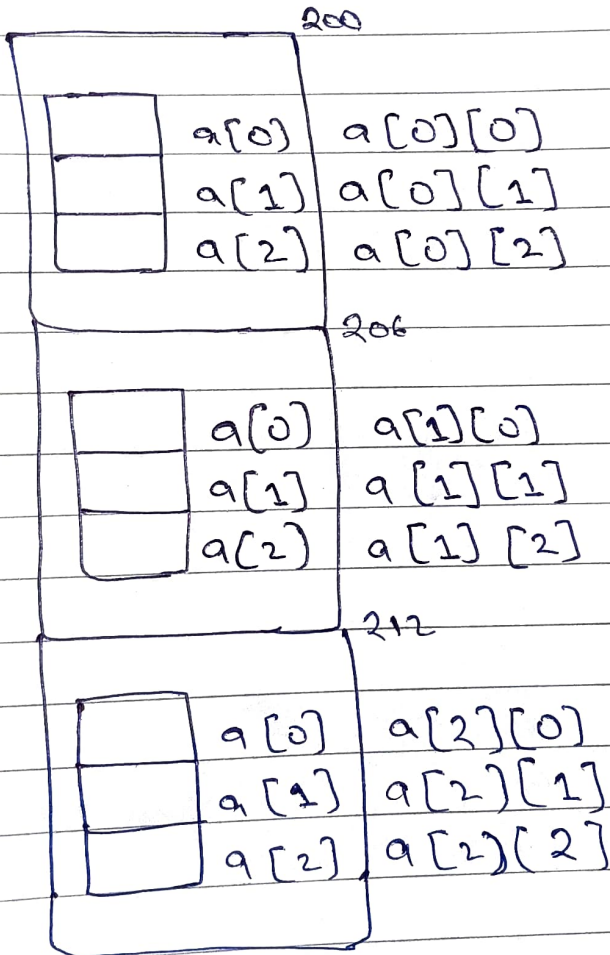 200
a[0] a[0][0]
a[1] a[0][1]
a[2] a[0][2]
206
a[0] a[1][0]
a[1] a[1][1]
a[2] a[1][2]
212
a[0] a[2][0]
a[1] a[2][1]
a[2] a[2][2]